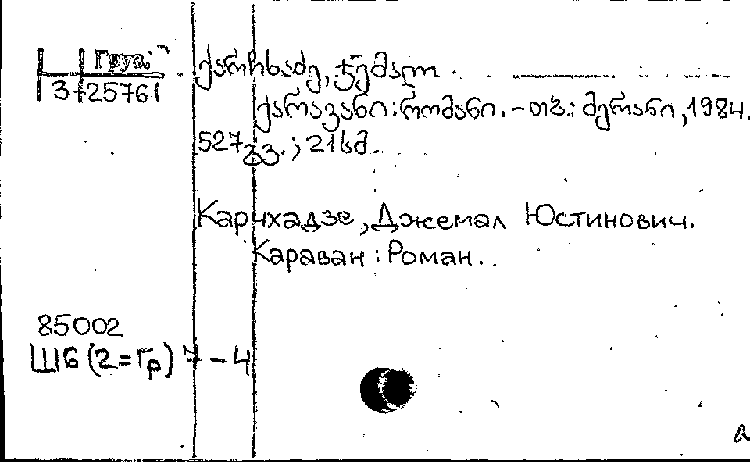 Груз.
3-25761
ქარჩხაძე, ჯემალ
ქარავანი: რომანი. – თბ.: მერანი, 1984.
527 გვ.; 21 სმ.
Карчхадзе, Джемал Юстинович.
Караван: Роман.
85002
Ш6(2=Гр)7-4